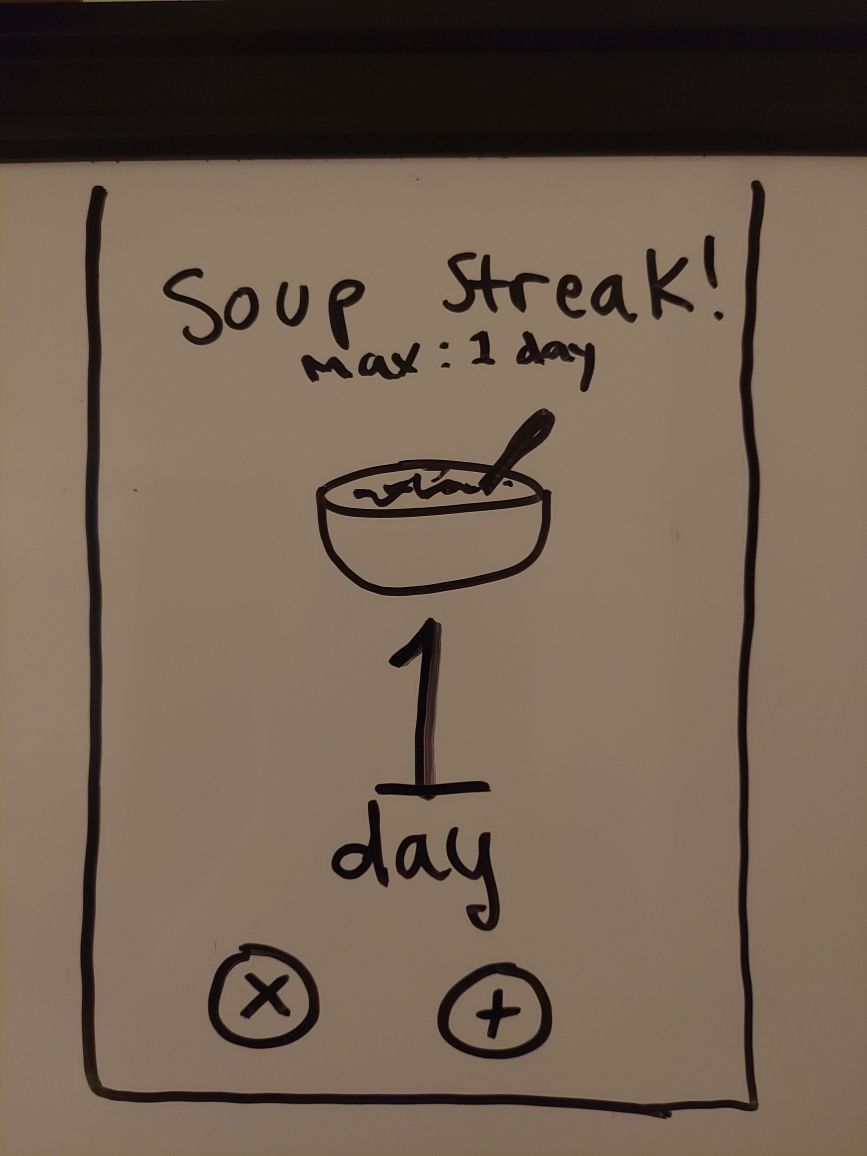 Soup Streak!
max: 1 day
1
day
x +